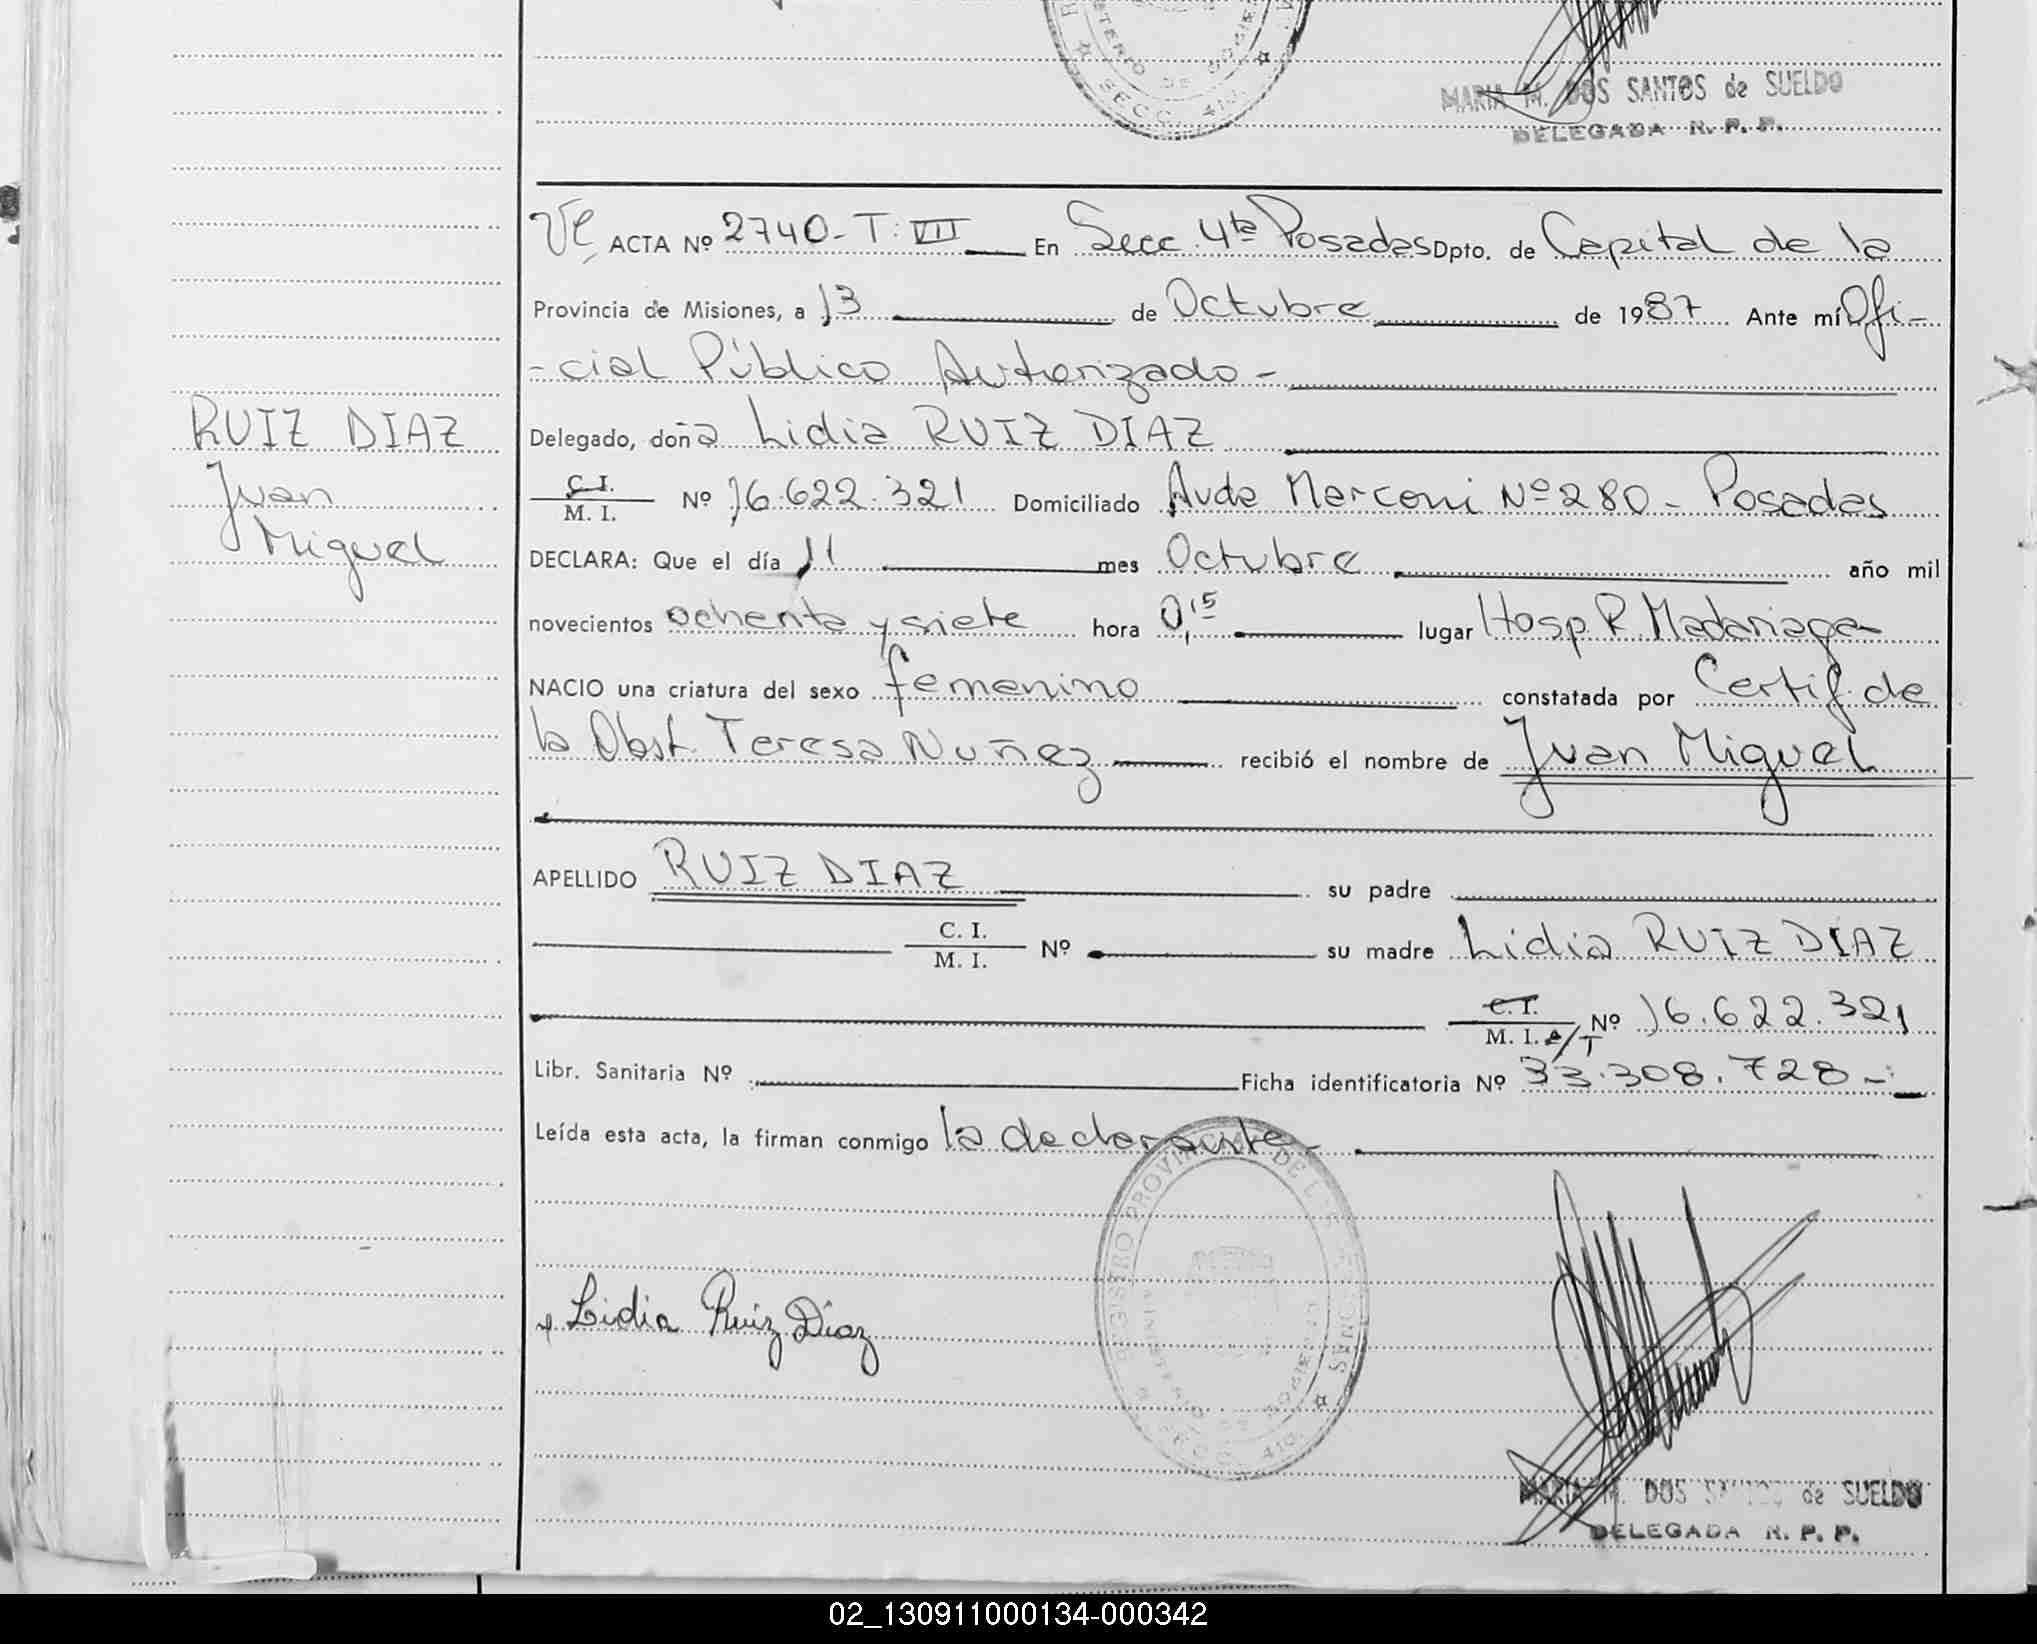 MINISTERIO DE GOBIER
SECC. 410.
MARIA M. DOS SANTOS de SUELDO
DELEGADA R. P. P.
ACTA Nº 2740-T: VII En Secc. 4ta Posadas Dpto. de Capital de la
Provincia de Misiones, a 13 de Octubre de 1987 Ante mí Ofi-
-cial Público Autorizado-
RUIZ DIAZ
Juan
Miguel
Delegado, doña Lidia RUIZ DIAZ
C. I.
M. I. Nº 16.622.321 Domiciliado Avda Marconi Nº 280- Posadas
DECLARA: Que el día 11 mes Octubre año mil
novecientos ochenta y siete hora 0,15 lugar Hosp. R. Madariaga
NACIO una criatura del sexo femenino constatada por Certif. de
la Obst. Teresa Nuñez recibió el nombre de Juan Miguel
APELLIDO RUIZ DIAZ su padre
C. I.
M. I. Nº su madre Lidia RUIZ DIAZ
C. I.
M. I. Nº 16.622.321
Libr. Sanitaria Nº Ficha identificatoria Nº 33.308.728-
Leída esta acta, la firman conmigo la declarante-
REGISTRO PROVINCIAL DE LAS PERSONAS
MINISTERIO DE GOBIERNO
SECC. 410.
Lidia Ruiz Díaz
MARIA M. DOS SANTOS de SUELDO
DELEGADA R. P. P.
02_130911000134-000342